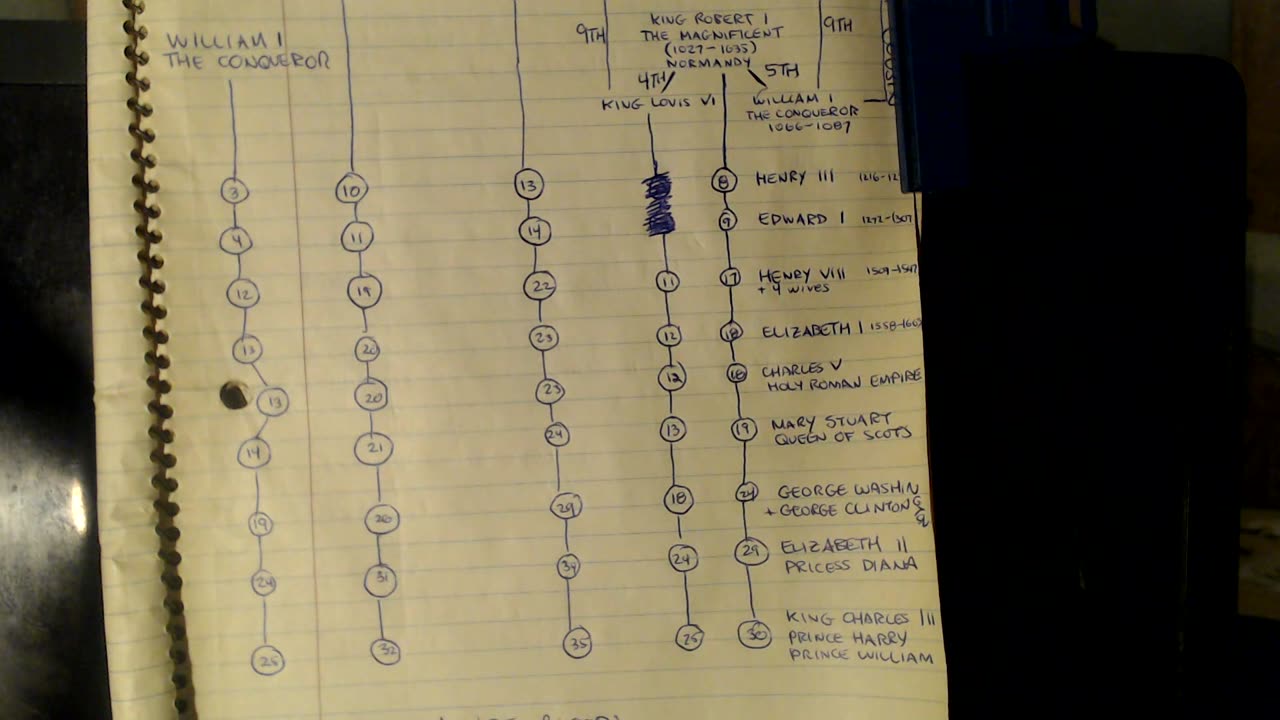 WILLIAM I
THE CONQUEROR
9TH
KING ROBERT I
THE MAGNIFICENT
(1027-1035)
NORMANDY
9TH
4TH
5TH
KING LOUIS VI
WILLIAM I
THE CONQUEROR
1066-1087
3 10 13 8 HENRY III
4 11 14 9 EDWARD I 1272-1307
12 19 22 11 17 HENRY VIII 1509-1547
+ 4 WIVES
13 20 23 12 18 ELIZABETH I 1558-160
13 20 23 12 18 CHARLES V
HOLY ROMAN EMPIRE
14 21 24 13 19 MARY STUART
QUEEN OF SCOTS
19 26 29 18 24 GEORGE WASHIN
+ GEORGE CLINTON
24 31 34 24 29 ELIZABETH II
PRICESS DIANA
25 32 35 25 30 KING CHARLES III
PRINCE HARRY
PRINCE WILLIAM